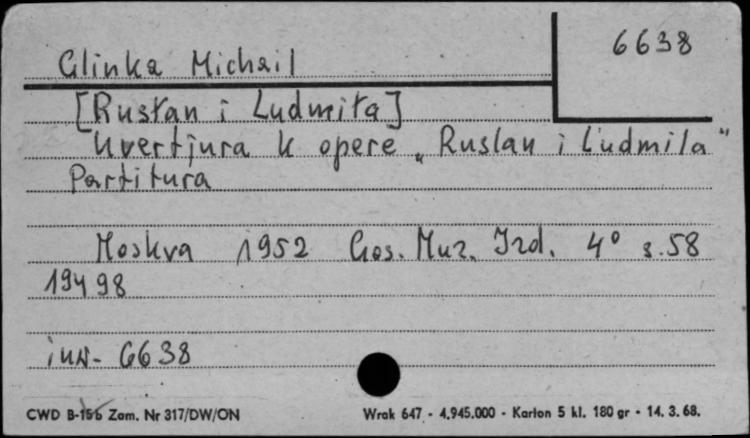 6638
Glinka Michail
[Rusłan i Ludmiła]
Uvertjura k opere „Ruslan i Ludmila"
Partitura
Moskva 1952 Gos. Muz. Izd. 4° s. 58
19498
inw. 6638
CWD B-15b Zam. Nr 317/DW/ON Wrak 647 - 4.945.000 - Karton 5 kl. 180 gr - 14. 3. 68.